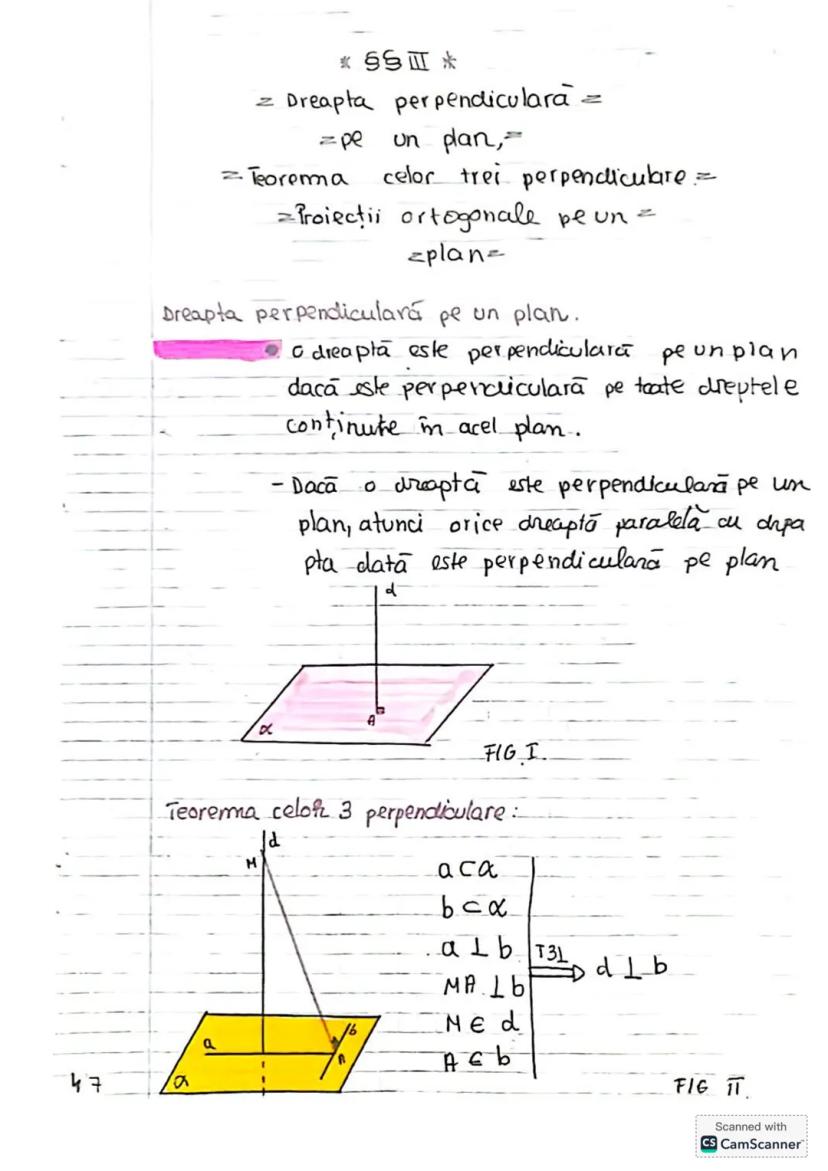 * §§ III *
= Dreapta perpendiculară =
= pe un plan, =
= Teorema celor trei perpendiculare =
= Proiecții ortogonale pe un =
= plan =
Dreapta perpendiculară pe un plan.
• O dreaptă este perpendiculară pe un plan
dacă este perpendiculară pe toate dreptele
conținute în acel plan.
- Dacă o dreaptă este perpendiculară pe un
plan, atunci orice dreaptă paralelă cu drea
pta dată este perpendiculară pe plan
d
A
α
FIG I.
Teorema celor 3 perpendiculare:
d
M
a ⊂ α
b ⊂ α
a ⊥ b
T3⊥
⇒ d ⊥ b
MA ⊥ b
M ∈ d
A ∈ b
a
b
A
α
47
FIG II.
Scanned with
CS CamScanner